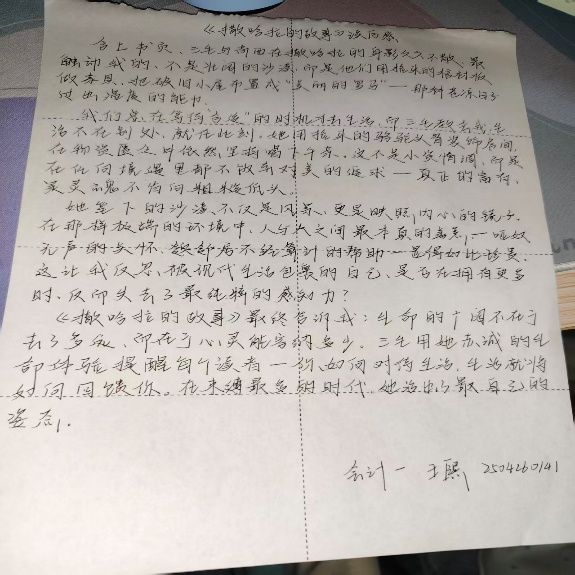 《撒哈拉的故事》读后感
合上书页,三毛与荷西在撒哈拉的身影久久不散。最
触动我的,不是壮阔的沙漠,而是他们用捡来的棺材板
做家具,把破旧小屋布置成"美丽的罗马"——那种把冻日子
过出温度的能力。
我们总在等待"合适"的时机才去生活,而三毛教会我生
活不在别处,就在此刻。她用捡来的骆驼头骨装饰房间,
在物资匮乏之中依然坚持喝下午茶。这不是小资情调,而是
在任何境遇里都不放弃对美的追求——真正的高贵,
是灵魂不肯向粗糙低头。
她笔下的沙漠不仅是风景,更是映照内心的镜子。
在那样极端的环境中,人与人之间最本真的善意,——哑奴
无声的关怀、邻居不经算计的帮助——显得如此珍贵。
这让我反思:被现代生活包裹的自己,是否在拥有更多
时,反而失去了最纯粹的感知力?
《撒哈拉的故事》最终告诉我:生命的广阔不在于
去了多远,而在于心灵能容纳多少。三毛用她赤诚的生
命体验提醒每个读者——你如何对待生活,生活就将
如何回馈你。在束缚最多的时代,她活出了最自己的
姿态。
会计一 王熙 2504260141